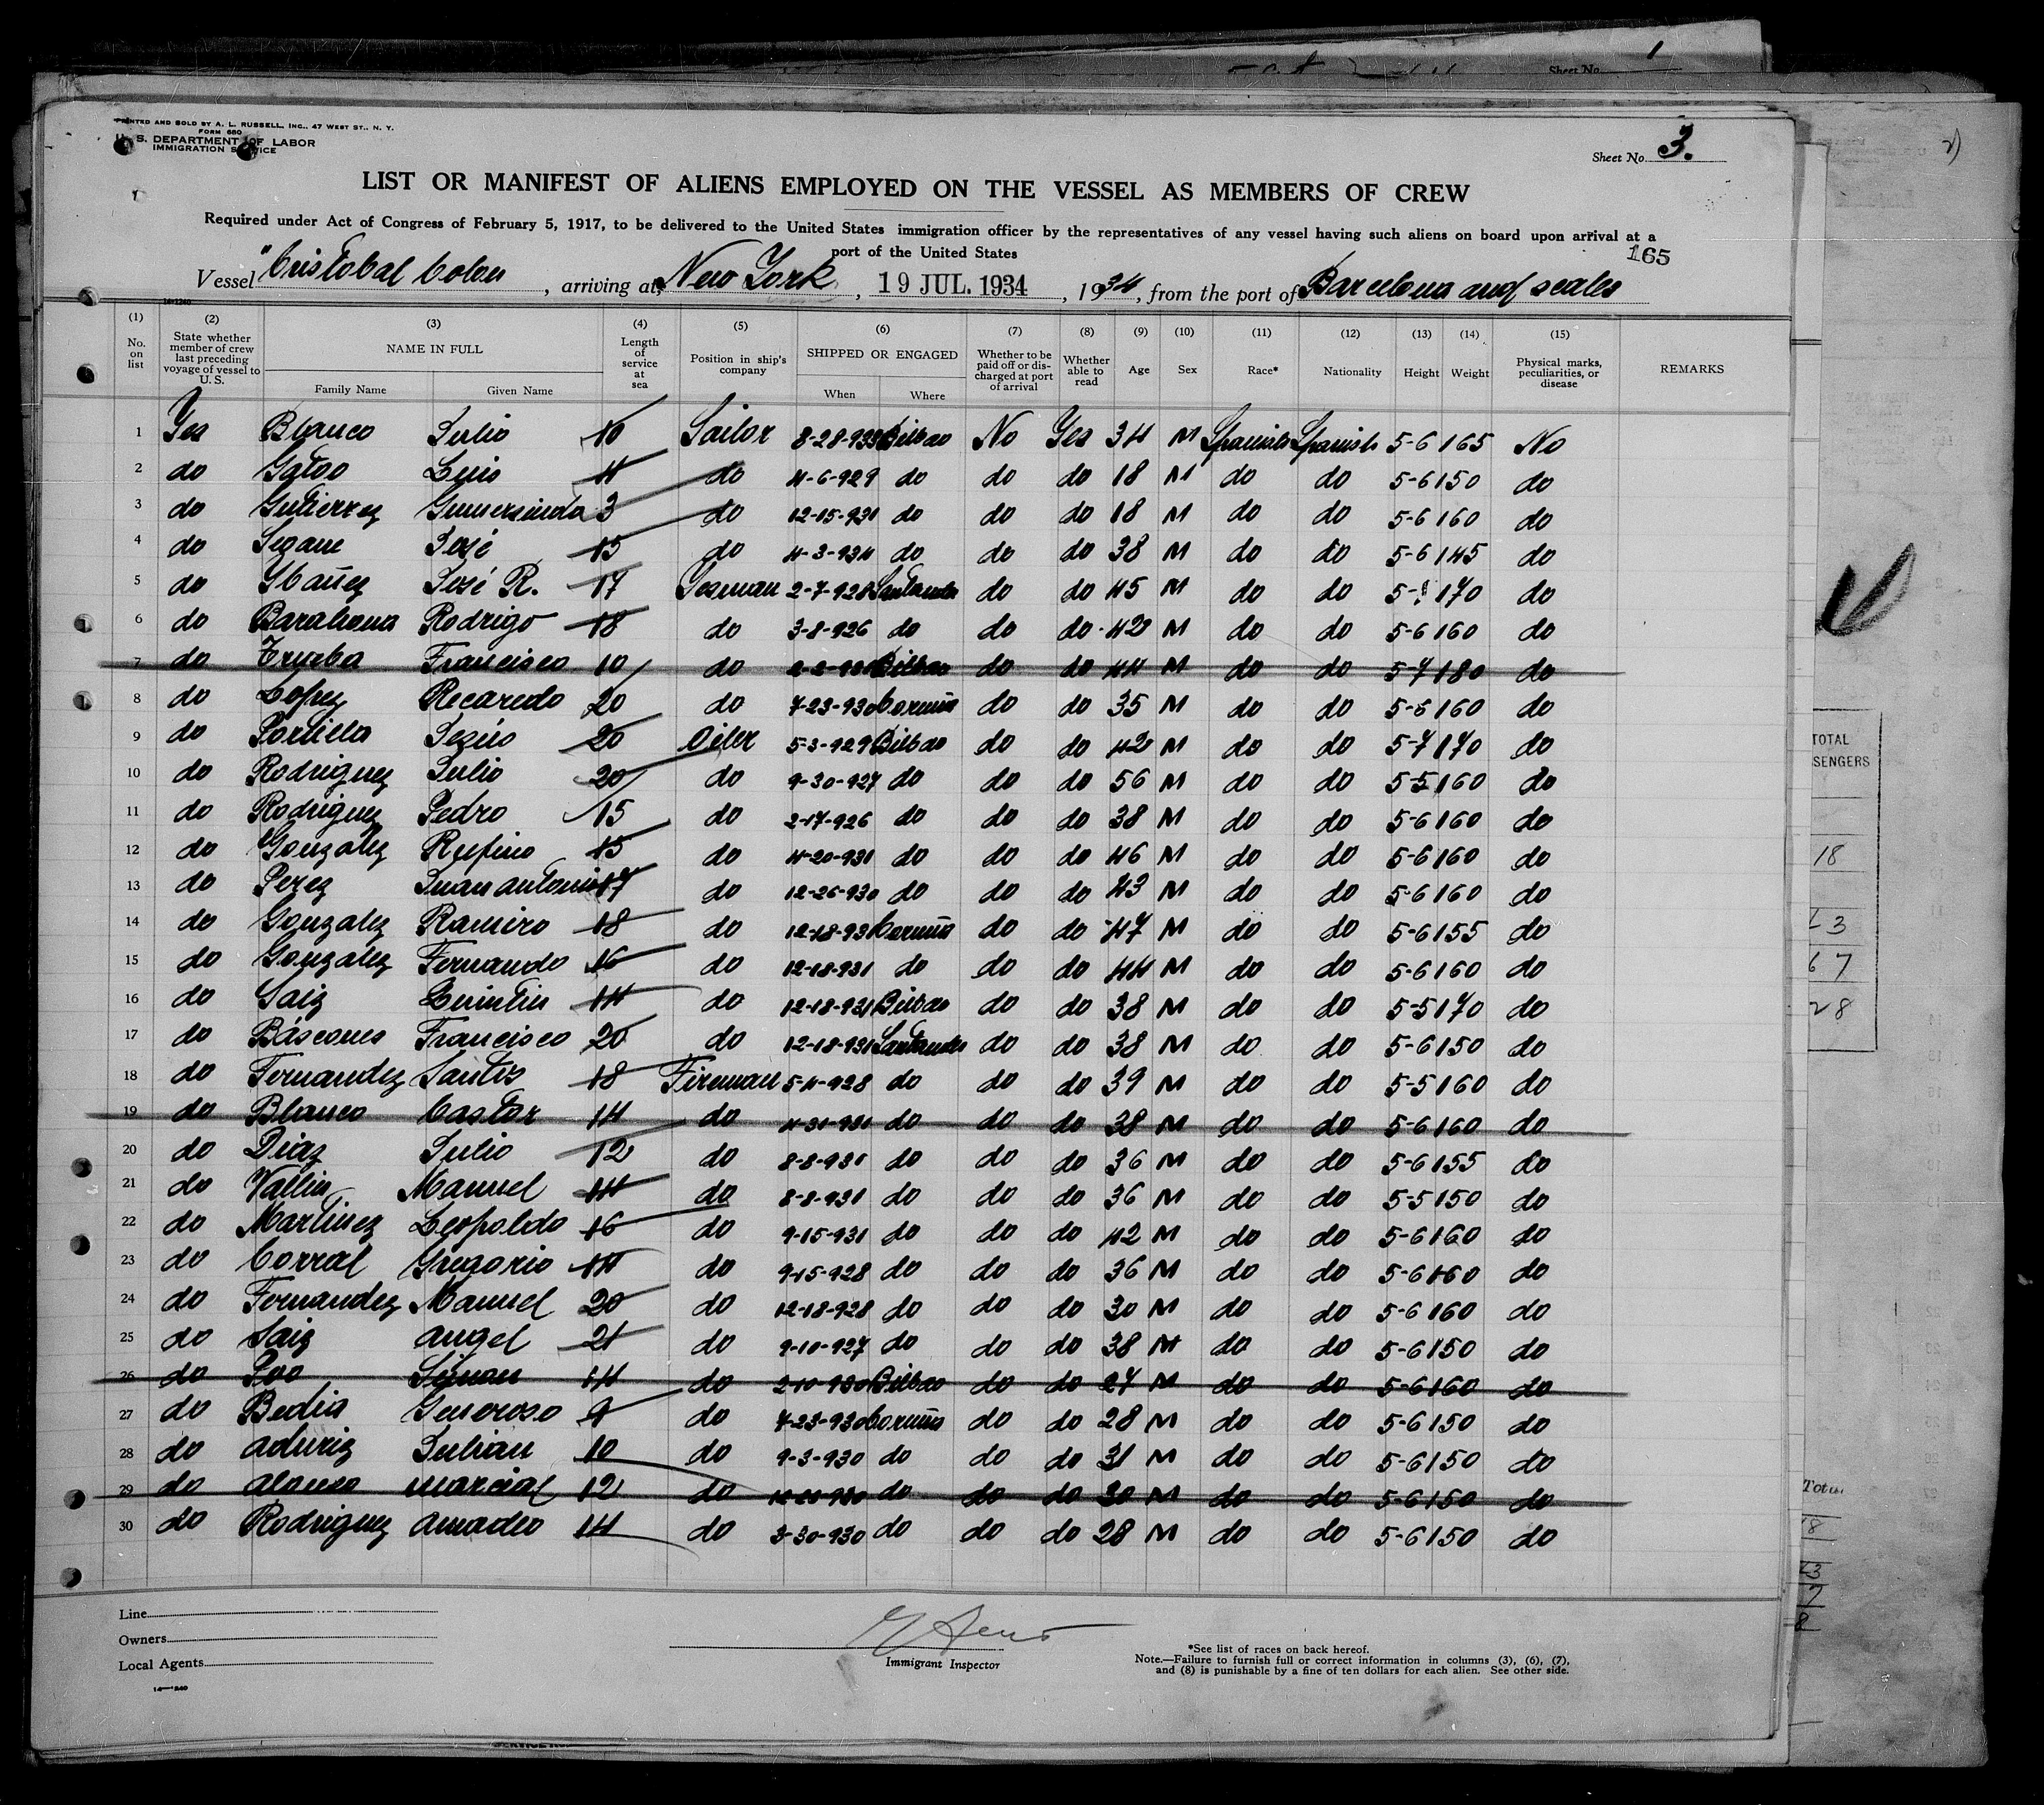 Sheet No. 1
PRINTED AND SOLD BY A. L. RUSSELL, INC., 47 WEST ST., N. Y.
FORM 680
U. S. DEPARTMENT OF LABOR
IMMIGRATION SERVICE
Sheet No. 3.
LIST OR MANIFEST OF ALIENS EMPLOYED ON THE VESSEL AS MEMBERS OF CREW
Required under Act of Congress of February 5, 1917, to be delivered to the United States immigration officer by the representatives of any vessel having such aliens on board upon arrival at a
port of the United States
165
Vessel "Cristobal Colon, arriving at New York, 19 JUL. 1934, 1934, from the port of Barcelona and scales
(1) (2) (3) (4) (5) (6) (7) (8) (9) (10) (11) (12) (13) (14) (15)
No. on list State whether member of crew last preceding voyage of vessel to U. S. NAME IN FULL Family Name Given Name Length of service at sea Position in ship's company SHIPPED OR ENGAGED When Where Whether to be paid off or discharged at port of arrival Whether able to read Age Sex Race* Nationality Height Weight Physical marks, peculiarities, or disease REMARKS
1 Yes Blanco Julio 10 Sailor 8-28-933 Bilbao No Yes 34 M Spanish Spanish 5-6 165 No
2 do Luis 4 do 4-6-929 do do do 18 M do do 5-6 150 do
3 do Gutierrez Gumersindo 3 do 12-15-931 do do do 18 M do do 5-6 160 do
4 do Seoane José 15 do 4-3-934 do do do 38 M do do 5-6 145 do
5 do Ybañez José R. 17 2-7-928 Santander do do 45 M do do 5- 170 do
6 do Barahona Rodrigo 18 do 3-8-926 do do do 42 M do do 5-6 160 do
7 do Trueba Francisco 10 do 2-2-931 Bilbao do do 44 M do do 5-7 180 do
8 do Lopez Recaredo 20 do 7-23-930 Coruña do do 35 M do do 5-6 160 do
9 do Portilla Jesús 20 Oiler 5-3-929 Bilbao do do 42 M do do 5-7 170 do
10 do Rodriguez Julio 20 do 9-30-927 do do do 56 M do do 5-5 160 do
11 do Rodriguez Pedro 15 do 2-17-926 do do do 38 M do do 5-6 160 do
12 do Gonzalez Rufino 15 do 4-20-931 do do do 46 M do do 5-6 160 do
13 do Perez Juan Antonio 17 do 12-26-930 do do do 43 M do do 5-6 160 do
14 do Gonzalez Ramiro 18 do 12-18-931 Coruña do do 47 M do do 5-6 155 do
15 do Gonzalez Fernando 16 do 12-18-931 do do do 44 M do do 5-6 160 do
16 do Saiz Quintin 14 do 12-18-931 Bilbao do do 38 M do do 5-5 170 do
17 do Báscones Francisco 20 do 12-18-931 Santander do do 38 M do do 5-6 150 do
18 do Fernandez Santos 18 Fireman 5-4-928 do do do 39 M do do 5-5 160 do
19 do Blanco Castor 14 do 4-31-931 do do do 38 M do do 5-6 160 do
20 do Diaz Julio 12 do 8-8-931 do do do 36 M do do 5-6 155 do
21 do Vallin Manuel 14 do 8-8-931 do do do 36 M do do 5-5 150 do
22 do Martinez Leopoldo 16 do 9-15-931 do do do 42 M do do 5-6 160 do
23 do Corral Gregorio 14 do 9-15-928 do do do 36 M do do 5-6 160 do
24 do Fernandez Manuel 20 do 12-18-928 do do do 30 M do do 5-6 160 do
25 do Saiz Angel 21 do 9-10-927 do do do 38 M do do 5-6 150 do
26 do Poo 14 do 2-10-930 Bilbao do do 27 M do do 5-6 160 do
27 do Bedia Generoso 9 do 7-23-930 Coruña do do 28 M do do 5-6 150 do
28 do Aduriz Julian 10 do 9-3-930 do do do 31 M do do 5-6 150 do
29 do Alonso Marcial 12 do do do do 30 M do do 5-6 150 do
30 do Rodriguez Amadeo 14 do 3-30-930 do do do 28 M do do 5-6 150 do
Line
Owners
Local Agents
Immigrant Inspector
*See list of races on back hereof.
Note.—Failure to furnish full or correct information in columns (3), (6), (7),
and (8) is punishable by a fine of ten dollars for each alien. See other side.
TOTAL
SENGERS
18
67
28
Total